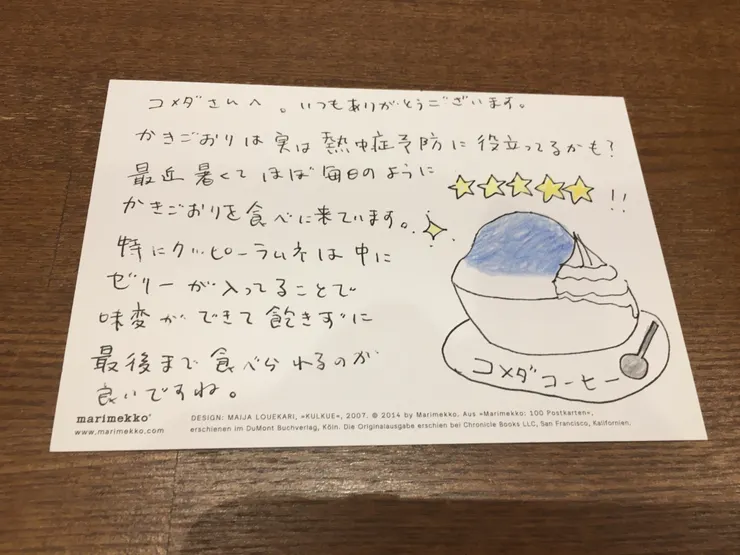 コメダさんへ 。いつもありがとうございます。
かきごおりは実は熱中症予防に役立ってるかも?
最近暑くてほぼ毎日のように
かきごおりを食べに来ています。
!!
特にクッピーラムネは中に
ゼリーが入ってることで
味変ができて飽きずに
最後まで食べられるのが
良いですね。
コメダコーヒー
marimekko®
www.marimekko.com
DESIGN: MAIJA LOUEKARI, »KULKUE«, 2007. © 2014 by Marimekko. Aus »Marimekko: 100 Postkarten«,
erschienen im DuMont Buchverlag, Köln. Die Originalausgabe erschien bei Chronicle Books LLC, San Francisco, Kalifornien.